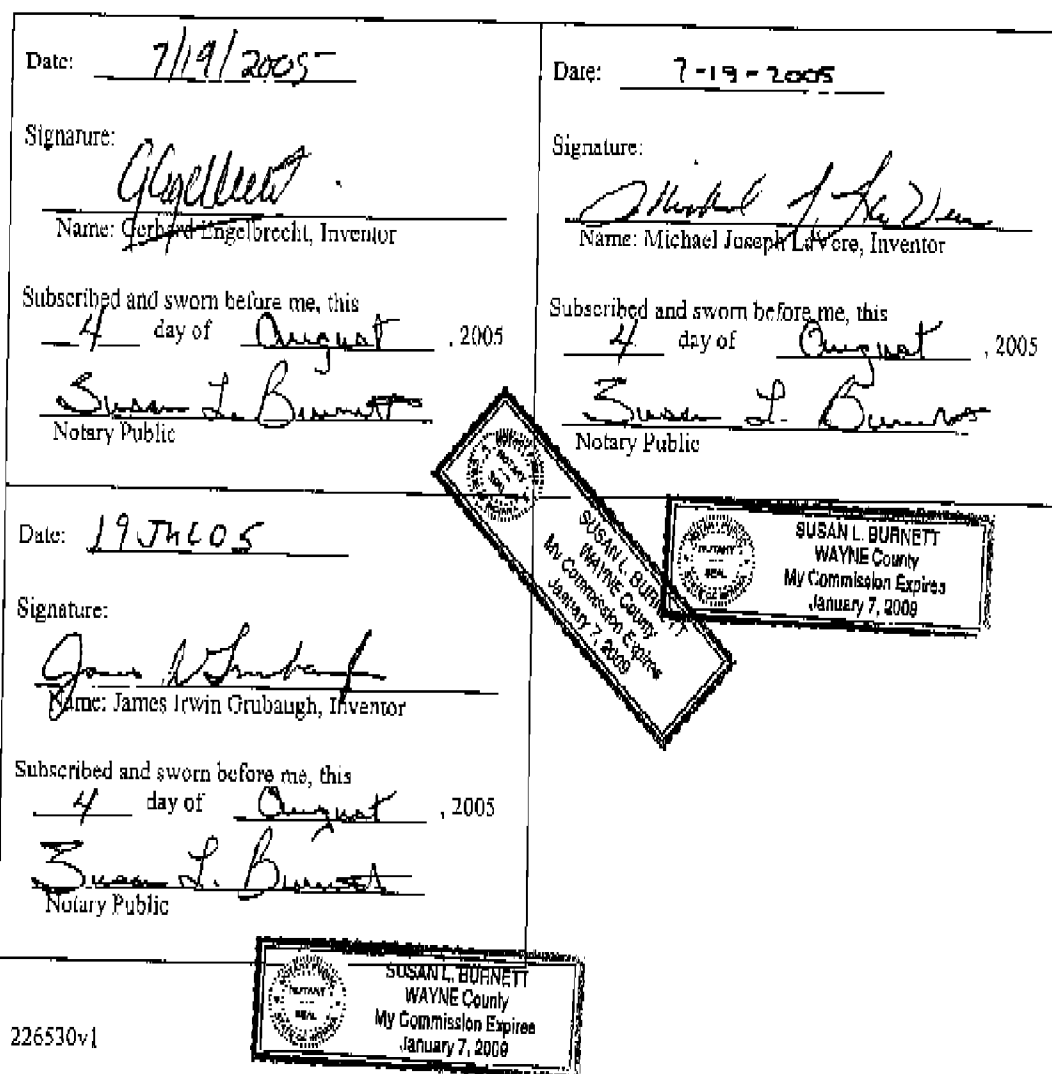 Date: 7/19/2005
Signature:
Name: Gerhard Engelbrecht, Inventor
Subscribed and sworn before me, this
4 day of August, 2005
Susan L. Burnett
Notary Public
Date: 7-19-2005
Signature:
Name: Michael Joseph LaVere, Inventor
Subscribed and sworn before me, this
4 day of August, 2005
Susan L. Burnett
Notary Public
NOTARY
SEAL
SUSAN L. BURNETT
WAYNE County
My Commission Expires
January 7, 2009
NOTARY
SEAL
SUSAN L. BURNETT
WAYNE County
My Commission Expires
January 7, 2009
Date: 19 JUL 05
Signature:
Name: James Irwin Grubaugh, Inventor
Subscribed and sworn before me, this
4 day of August, 2005
Susan L. Burnett
Notary Public
NOTARY
SEAL
SUSAN L. BURNETT
WAYNE County
My Commission Expires
January 7, 2009
226530v1